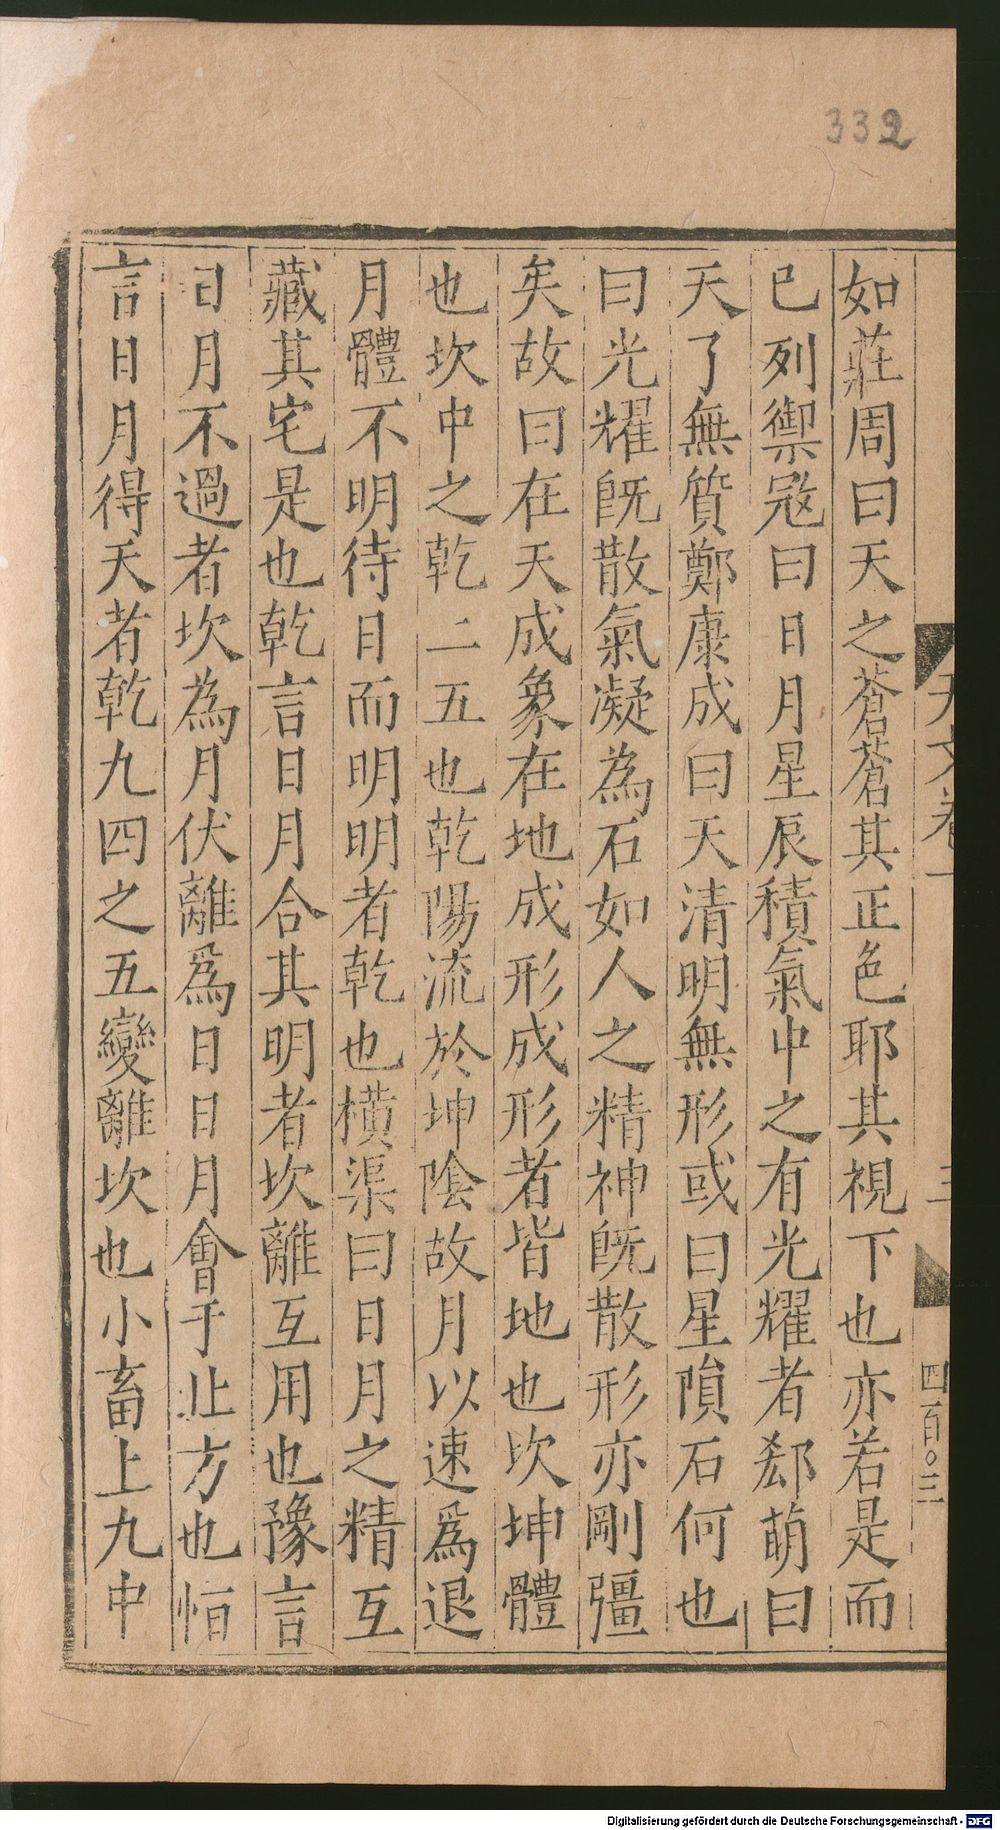 332
天文卷一
三
四百〇三
如莊周曰天之蒼蒼其正色耶其視下也亦若是而
已列禦𡨥曰日月星辰積氣中之有光耀者郄萌曰
天了無質鄭康成曰天清明無形或曰星隕石何也
曰光耀旣散氣凝為石如人之精神旣散形亦剛彊
矣故曰在天成象在地成形成形者皆地也坎坤體
也坎中之乾二五也乾陽流於坤陰故月以速爲退
月體不明待日而明明者乾也橫渠曰日月之精互
藏其宅是也乾言日月合其明者坎離互用也豫言
日月不過者坎為月伏離爲日日月會于北方也恒
言日月得天者乾九四之五變離坎也小畜上九中
Digitalisierung gefördert durch die Deutsche Forschungsgemeinschaft - DFG